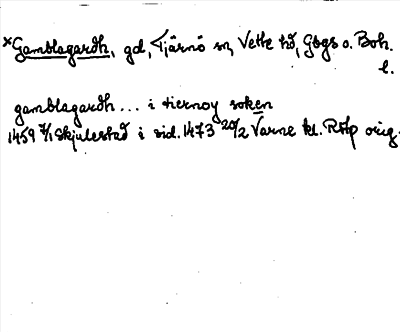 ×Gamblagardh, gd, Tjärnö sn, Vette hd, Gbgs o. Boh.
l.
gamblagardh ... i tiernoy soken
1459 7/1 Skjulestad i vid. 1473 20/2 Varne kl. RHp orig.